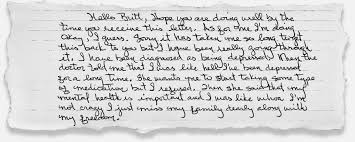 Hello Britt, Hope you are doing well by the
time you receive this letter. As for me I'm doing
okay I guess. Sorry it has taken me so long to get
this back to you but I have been really going through
it, I have been diagnosed as being depressed. When the
doctor told me that I was like hell I've been depressed
for a long time. She wants me to start taking some type
of medication but I refused. Then she said that my
mental health is important and I was like whoa I'm
not crazy I just miss my family dearly along with
my freedom.